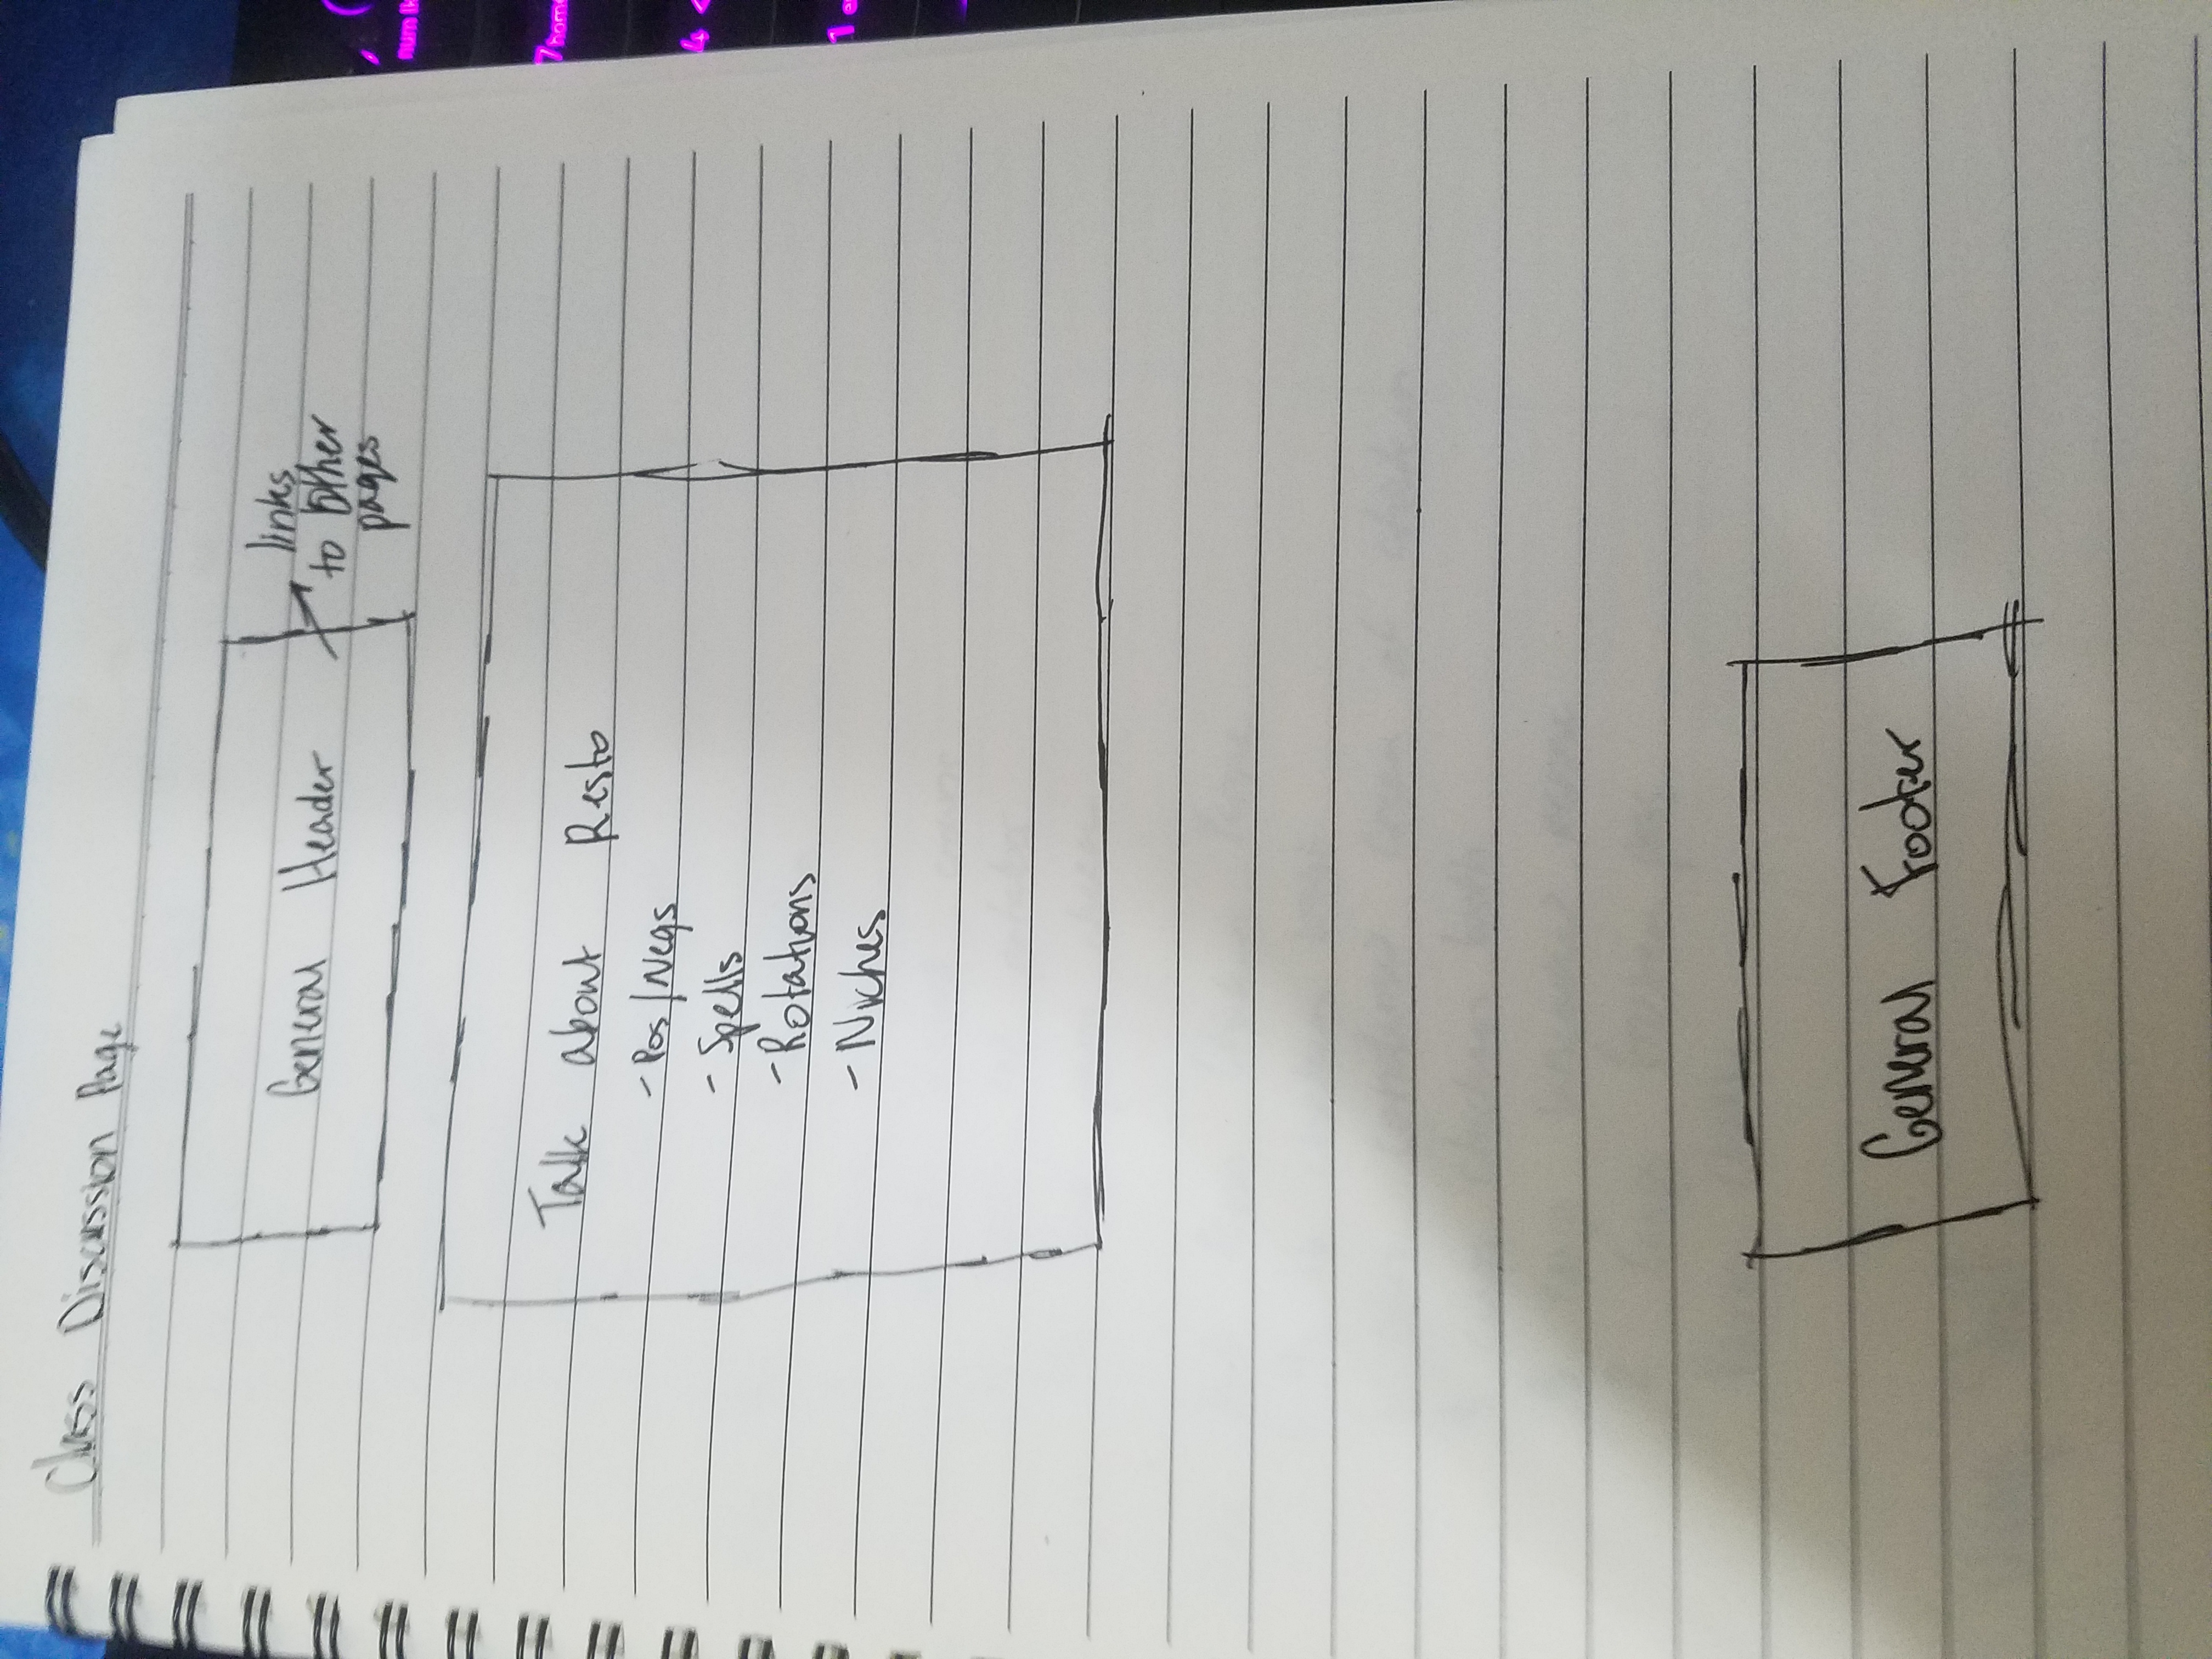 Class Discussion Page
General Header
links
to Other
pages
Talk about Resto
- Pos/Negs
- Spells
- Rotations
- Niches
General Footer
num lk
7 home
4 <
1 e